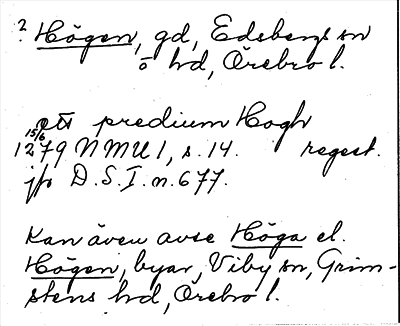 ? Högen, gd, Edsbergs sn
ö hd, Örebro l.
ett predium Hogh
15/6
1279 NMU 1, s. 14. regest.
jfr D.S.I. n. 677.
Kan även avse Höga el.
Högen, byar, Viby sn, Grim-
stens hd, Örebro l.